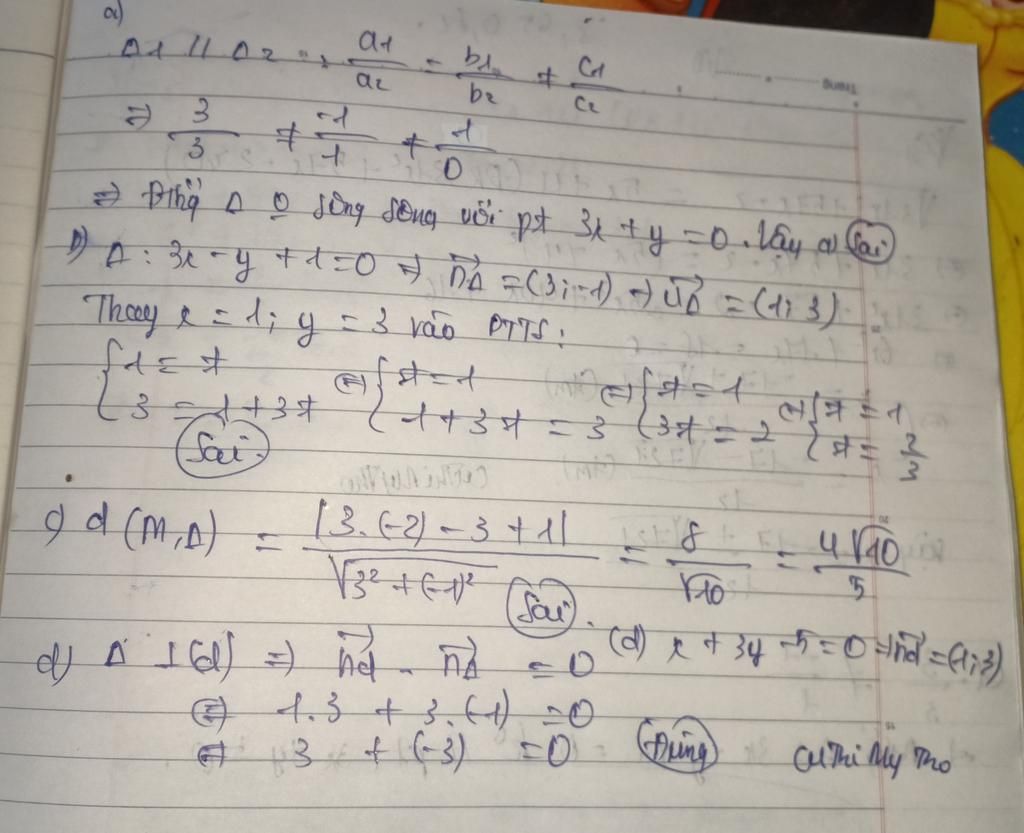 a)
Δ1 // Δ2 => a1/a2 = b1/b2 ≠ c1/c2
Trang
=> 3/3 ≠ -1/1 ≠ 1/0
=> Đthg Δ o song song với pt 3x + y = 0. Vậy a) Sai
b) Δ: 3x - y + 1 = 0 => nΔ = (3; -1) => uΔ = (1; 3)
Thay x = 1; y = 3 vào PTTS:
{1 = t <=> {t = 1 <=> {t = 1 <=> {t = 1
{3 = 1 + 3t {1 + 3t = 3 {3t = 2 {t = 2/3
Sai.
c) d(M, Δ) = |3.(-2) - 3 + 1| / √3² + (-1)² = 8/√10 = 4√10/5
Sai.
d) Δ ⊥ (d) => nd . nΔ = 0 (d) x + 3y - 5 = 0 => nd = (1; 3)
<=> 1.3 + 3.(-1) = 0
<=> 3 + (-3) = 0 Đúng CưThiMyTho